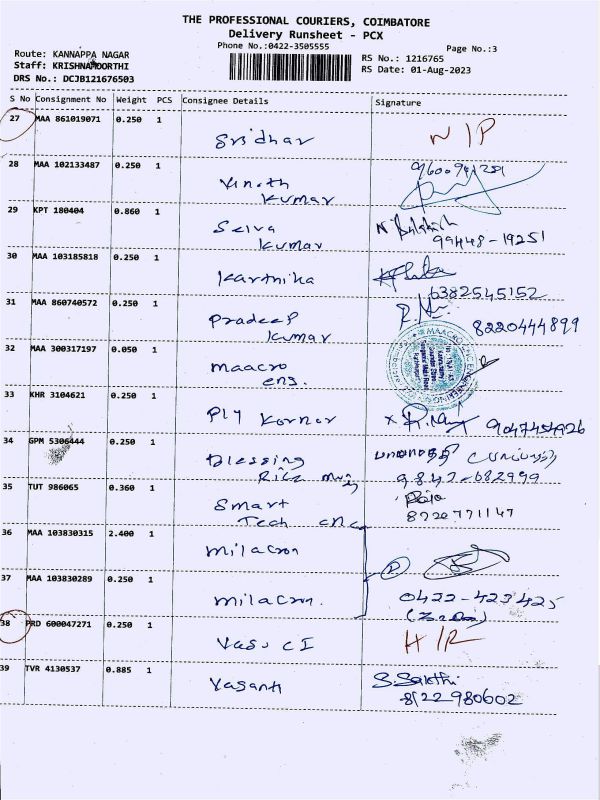 THE PROFESSIONAL COURIERS, COIMBATORE
Delivery Runsheet - PCX
Phone No.:0422-3505555
Page No.:3
Route: KANNAPPA NAGAR
Staff: KRISHNAMOORTHI
DRS No.: DCJB121676503
RS No.: 1216765
RS Date: 01-Aug-2023
S No Consignment No Weight PCS Consignee Details Signature
27 MAA 861019071 0.250 1
Sridhar N/P
28 MAA 102133487 0.250 1
Vinoth
Kumar
29 KPT 180404 0.860 1
Selva
Kumar 99448-19251
30 MAA 103185818 0.250 1
Karthika
6382545152
31 MAA 860740572 0.250 1
Pradeep
Kumar 8220444899
32 MAA 300317197 0.050 1
maacro
eng.
33 KHR 3104621 0.250 1
Ply Korner 9047454926
34 GPM 5306444 0.250 1
Blessing
Rice 9842-682999
35 TUT 986065 0.360 1
Smart
Tech cnc 8220771147
36 MAA 103830315 2.400 1
milacron
37 MAA 103830289 0.250 1
milacron. 0422-423425
38 PRD 600047271 0.250 1
Vasu CI H/R
39 TVR 4130537 0.885 1
Vasanth S.Sakthi
8122980602